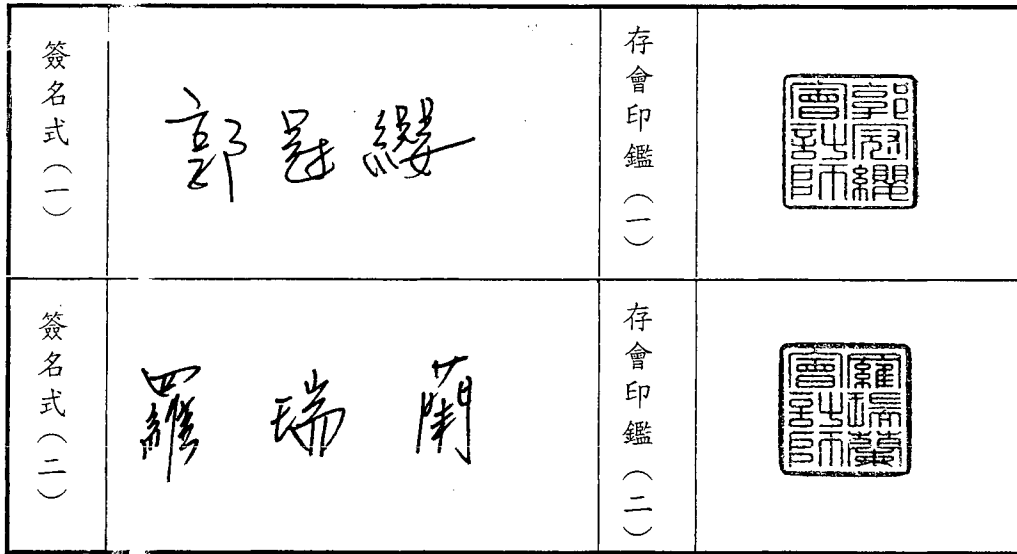 簽名式(一)
郭冠纓
存會印鑑(一)
郭冠纓會計師
簽名式(二)
羅瑞蘭
存會印鑑(二)
羅瑞蘭會計師